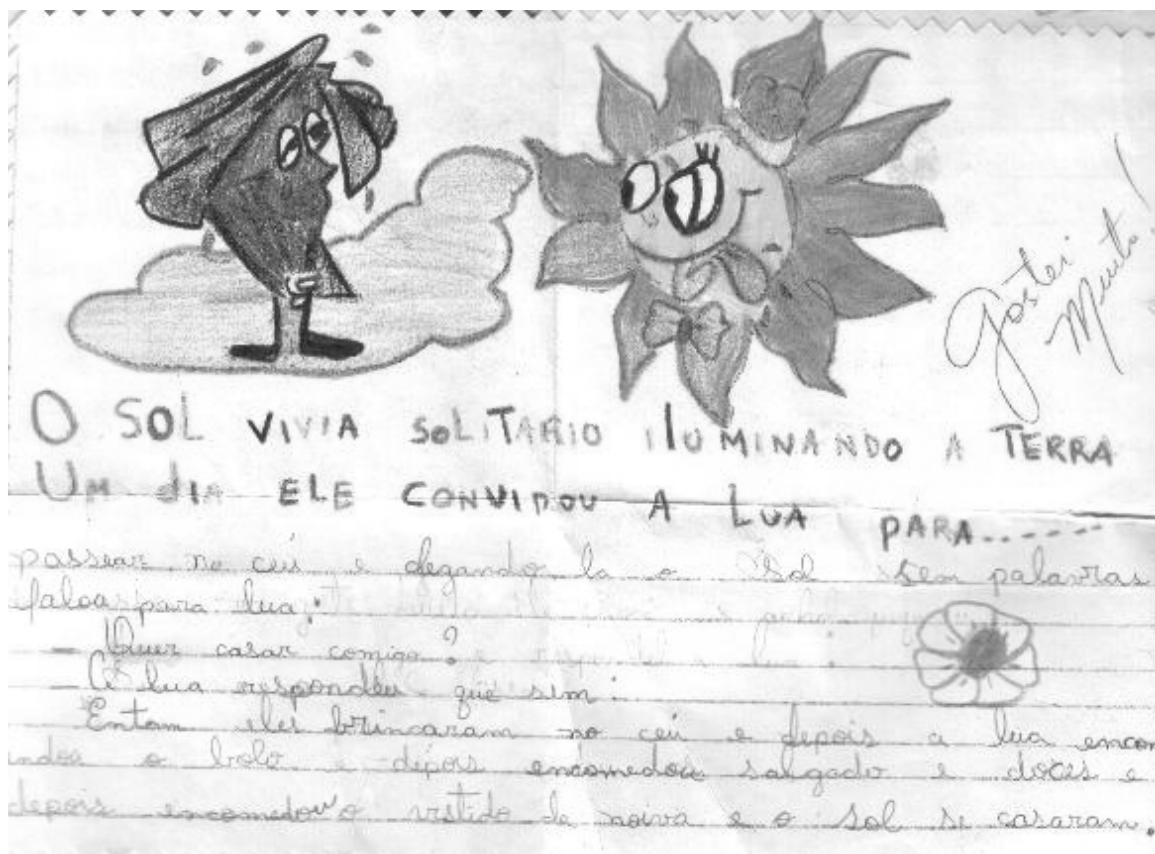 Gostei
Muito!
O SOL VIVIA SOLITARIO ILUMINANDO A TERRA
UM dIA ELE CONVIDOU A LUA PARA......
passear no ceú e chegando la o Sol sem palavras
faloas para lua:
– Quer casar comigo?
– A lua respondeu que sim:
Entam eles brincaram no ceú e depois a lua encon
indoa o bolo e dépois encomedou salgado e doces e
depois encomedou o vestido de noiva e o sol se casaram.